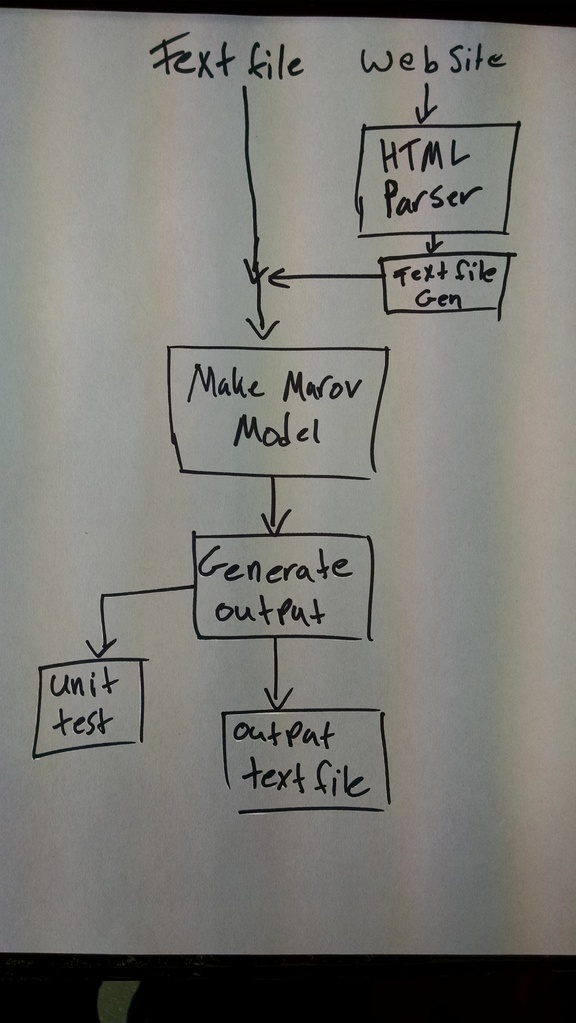 Text file
Website
HTML
Parser
Text file
Gen
Make Marov
Model
Generate
output
unit
test
output
text file